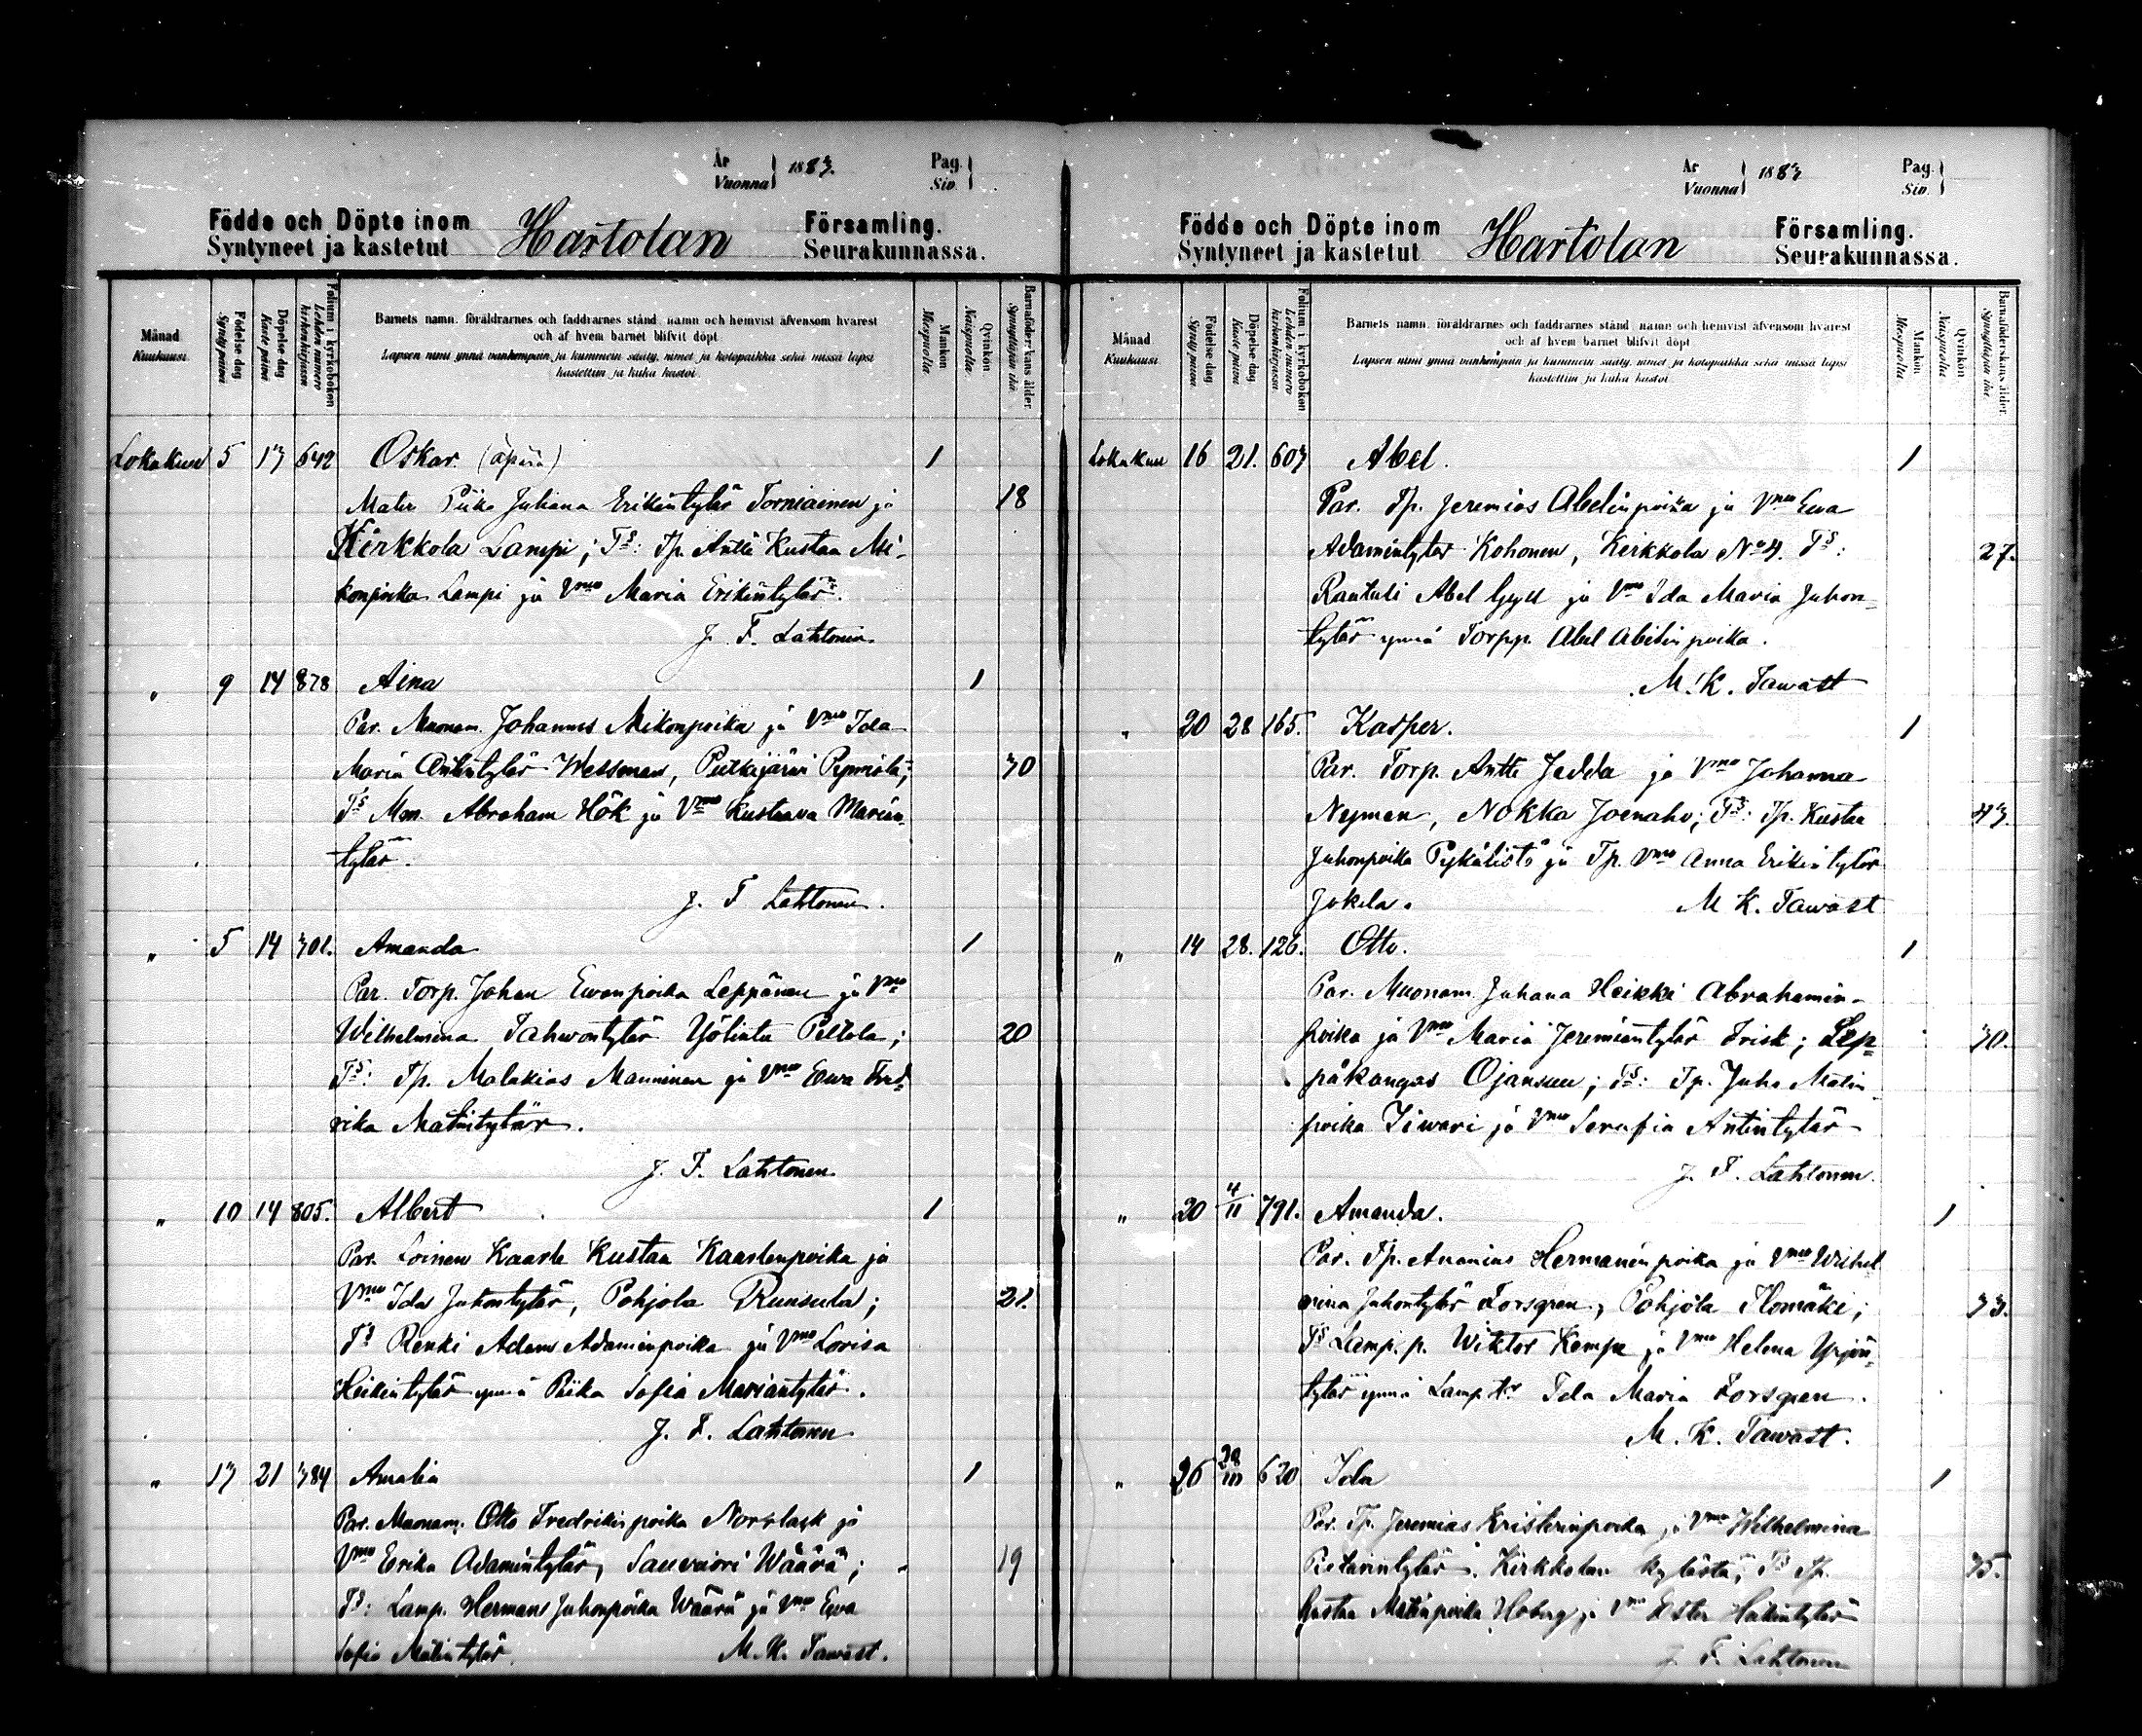 År
Vuonna } 1883.
Pag.
Siv. }
Födde och Döpte inom
Syntyneet ja kastetut
Hartolan
Församling.
Seurakunnassa.
Månad
Kuukausi.
Födelse dag
Syntypäivä
Döpelse dag
Kaste päivä
Folium i kyrkoboken
Lehden numero
kirkonkirjassa
Barnets namn, föräldrarnes och faddrarnes stånd, namn och hemvist äfvensom hvarest
och af hvem barnet blifvit döpt
Lapsen nimi ynnä vanhempain ja kummein sääty, nimet ja kotopaikka sekä missä lapsi
kastettiin ja kuka kastoi.
Mankön
Miespuolia
Qvinkön
Naispuolia
Barnaföderskans ålder
Synnyttäjän ikä
Lokakuu 5 13 642 Oskar. (äpärä) 1
Mater Piika Juliana Erikintytär Torniainen ja 18
Kirkkola Lampi; Ts: Tp. Antti Kustaa Mi-
konpoika Lampi ja Vmo Maria Erikintytär.
J. F. Lahtonen.
" 9 14 878 Aina 1
Par. Muonam. Johannes Mikonpoika ja Vmo Ida
Maria Antintytär Wessman, Putkijärvi; 30
Ts Mm. Abraham Hök ja Vmo Kustaava Marian-
tytär.
J. F. Lahtonen.
" 5 14 301. Amanda 1
Par. Torp. Johan Ewanpoika Leppänen ja Vmo
Wilhelmina Tahwontytär Yölintu Peltola; 20
Ts: Tp. Malakias Manninen ja Vmo Ewa Fred-
rika Matintytär.
J. F. Lahtonen
" 10 14 805. Albert 1
Par. Loinen Kaarle Kustaa Kaarlenpoika ja
Vmo Ida Juhontytär, Pohjola Ruusula; 21.
Ts Renki Adam Adaminpoika ja Vmo Lovisa
Heikintytär ynnä Piika Sofia Mariantytär.
J. F. Lahtonen
" 13 21 384 Amalia 1
Par. Muonam. Otto Fredrikinpoika Norrlack ja
Vmo Erika Adamintytär, Sauvuori Wäärä; 19
Ts: Lamp. Hermans Juhonpoika Wäärä ja Vmo Ewa
Sofia Matintytär. M. K. Tawast.
År
Vuonna } 1883
Pag.
Siv. }
Födde och Döpte inom
Syntyneet ja kastetut
Hartolan
Församling.
Seurakunnassa.
Månad
Kuukausi.
Födelse dag
Synty päivä
Döpelse dag
Kaste päivä
Folium i kyrkoboken
Lehden numero
kirkonkirjassa
Barnets namn, föräldrarnes och faddrarnes stånd, namn och hemvist äfvensom hvarest
och af hvem barnet blifvit döpt
Lapsen nimi ynnä vanhempain ja kummein sääty, nimet ja kotopaikka sekä missä lapsi
kastettiin ja kuka kastoi.
Mankön
Miespuolia
Qvinkön
Naispuolia
Barnaföderskans ålder
Synnyttäjän ikä
Lokakuu 16 21. 603 Abel. 1
Par. Tp. Jeremias Abelinpoika ja Vmo Ewa
Adamintytär Kohonen, Kirkkola No 4. Ts: 27.
Räätäli Abel ja Vmo Ida Maria Juhon-
tytär ynnä Torpp. Abel Abelinpoika.
M. K. Tawast
" 20 28 165. Kasper. 1
Par. Torp. Antti Jedda ja Vmo Johanna
Nyman, Nokka Joenaho; Ts: Tp. Kustaa 43.
Juhonpoika Pykälistö ja Tp. Vmo Anna Erikintytär
Jokela. M. K. Tawast
" 14 28. 126. Otto. 1
Par. Muonam. Juhana Heikki Abrahamin-
poika ja Vmo Maria Jeremiantytär Frisk; Lep- 30.
päkangas Ojansuu; Ts: Tp. Juho Matin-
poika Iiwari ja Vmo Serafia Antintytär
J. F. Lahtonen.
" 20 4/11 791. Amanda. 1
Par. Tp. Ananias Hermaninpoika ja Vmo Wilhel-
mina Juhontytär Forsgren, Pohjola Ilomäki; 33.
Ts Lamp. p. Wiktor Kempe ja Vmo Helena Yrjön-
tytär ynnä Lamp. tr Ida Maria Forsgren.
M. K. Tawast.
" 26 28/10 620 Ida 1
Par. Tp. Jeremias Kristerinpoika ja Vmo Wilhelmina
Pietarintytär, Kirkkolan kylästä; Ts Tp. 35.
Kustaa Matinpoika Hoberg ja Vmo Ester
J. F. Lahtonen